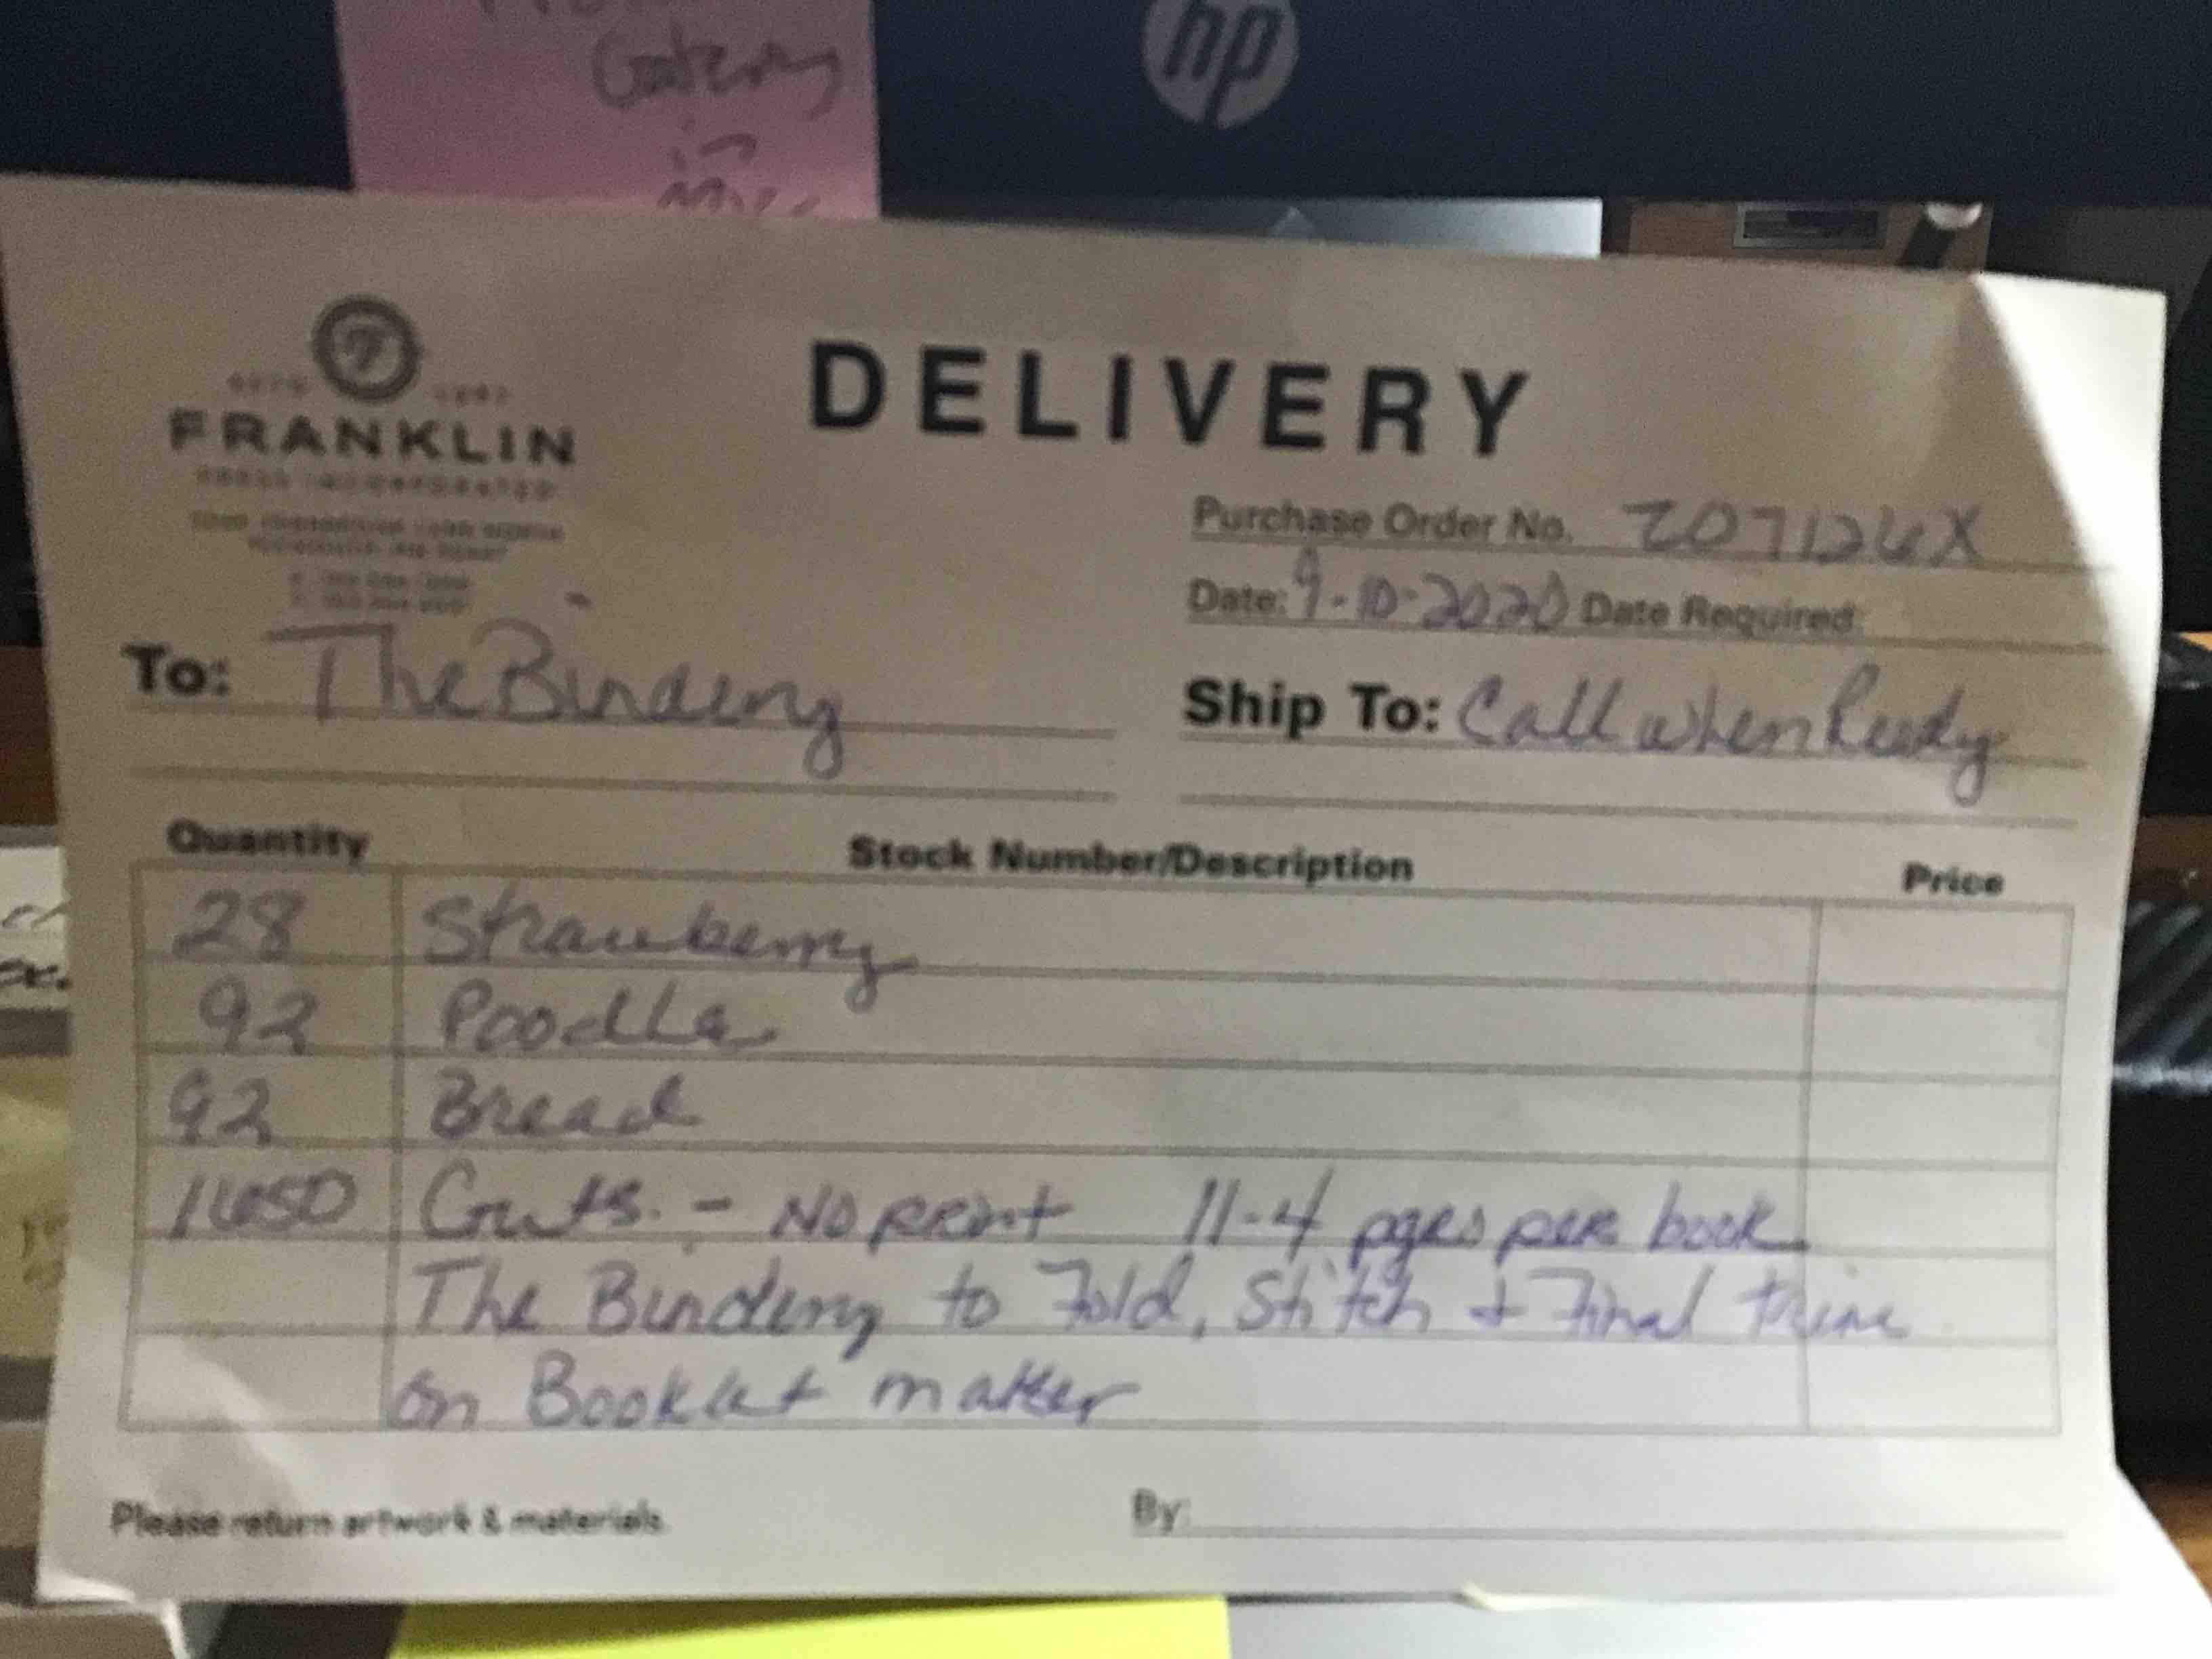 Gateway
in
hp
FRANKLIN
PRESS INCORPORATED
DELIVERY
Purchase Order No. 207126X
Date: 9-10-2020 Date Required:
To: The Bindery
Ship To: Call when Ready
Quantity Stock Number/Description Price
28 Strawberry
92 Poodle
92 Bread
1650 Guts. - No print 11-4 pges per book
The Bindery to Fold, Stitch + Final trim
on Booklet matter
Please return artwork & materials.
By: